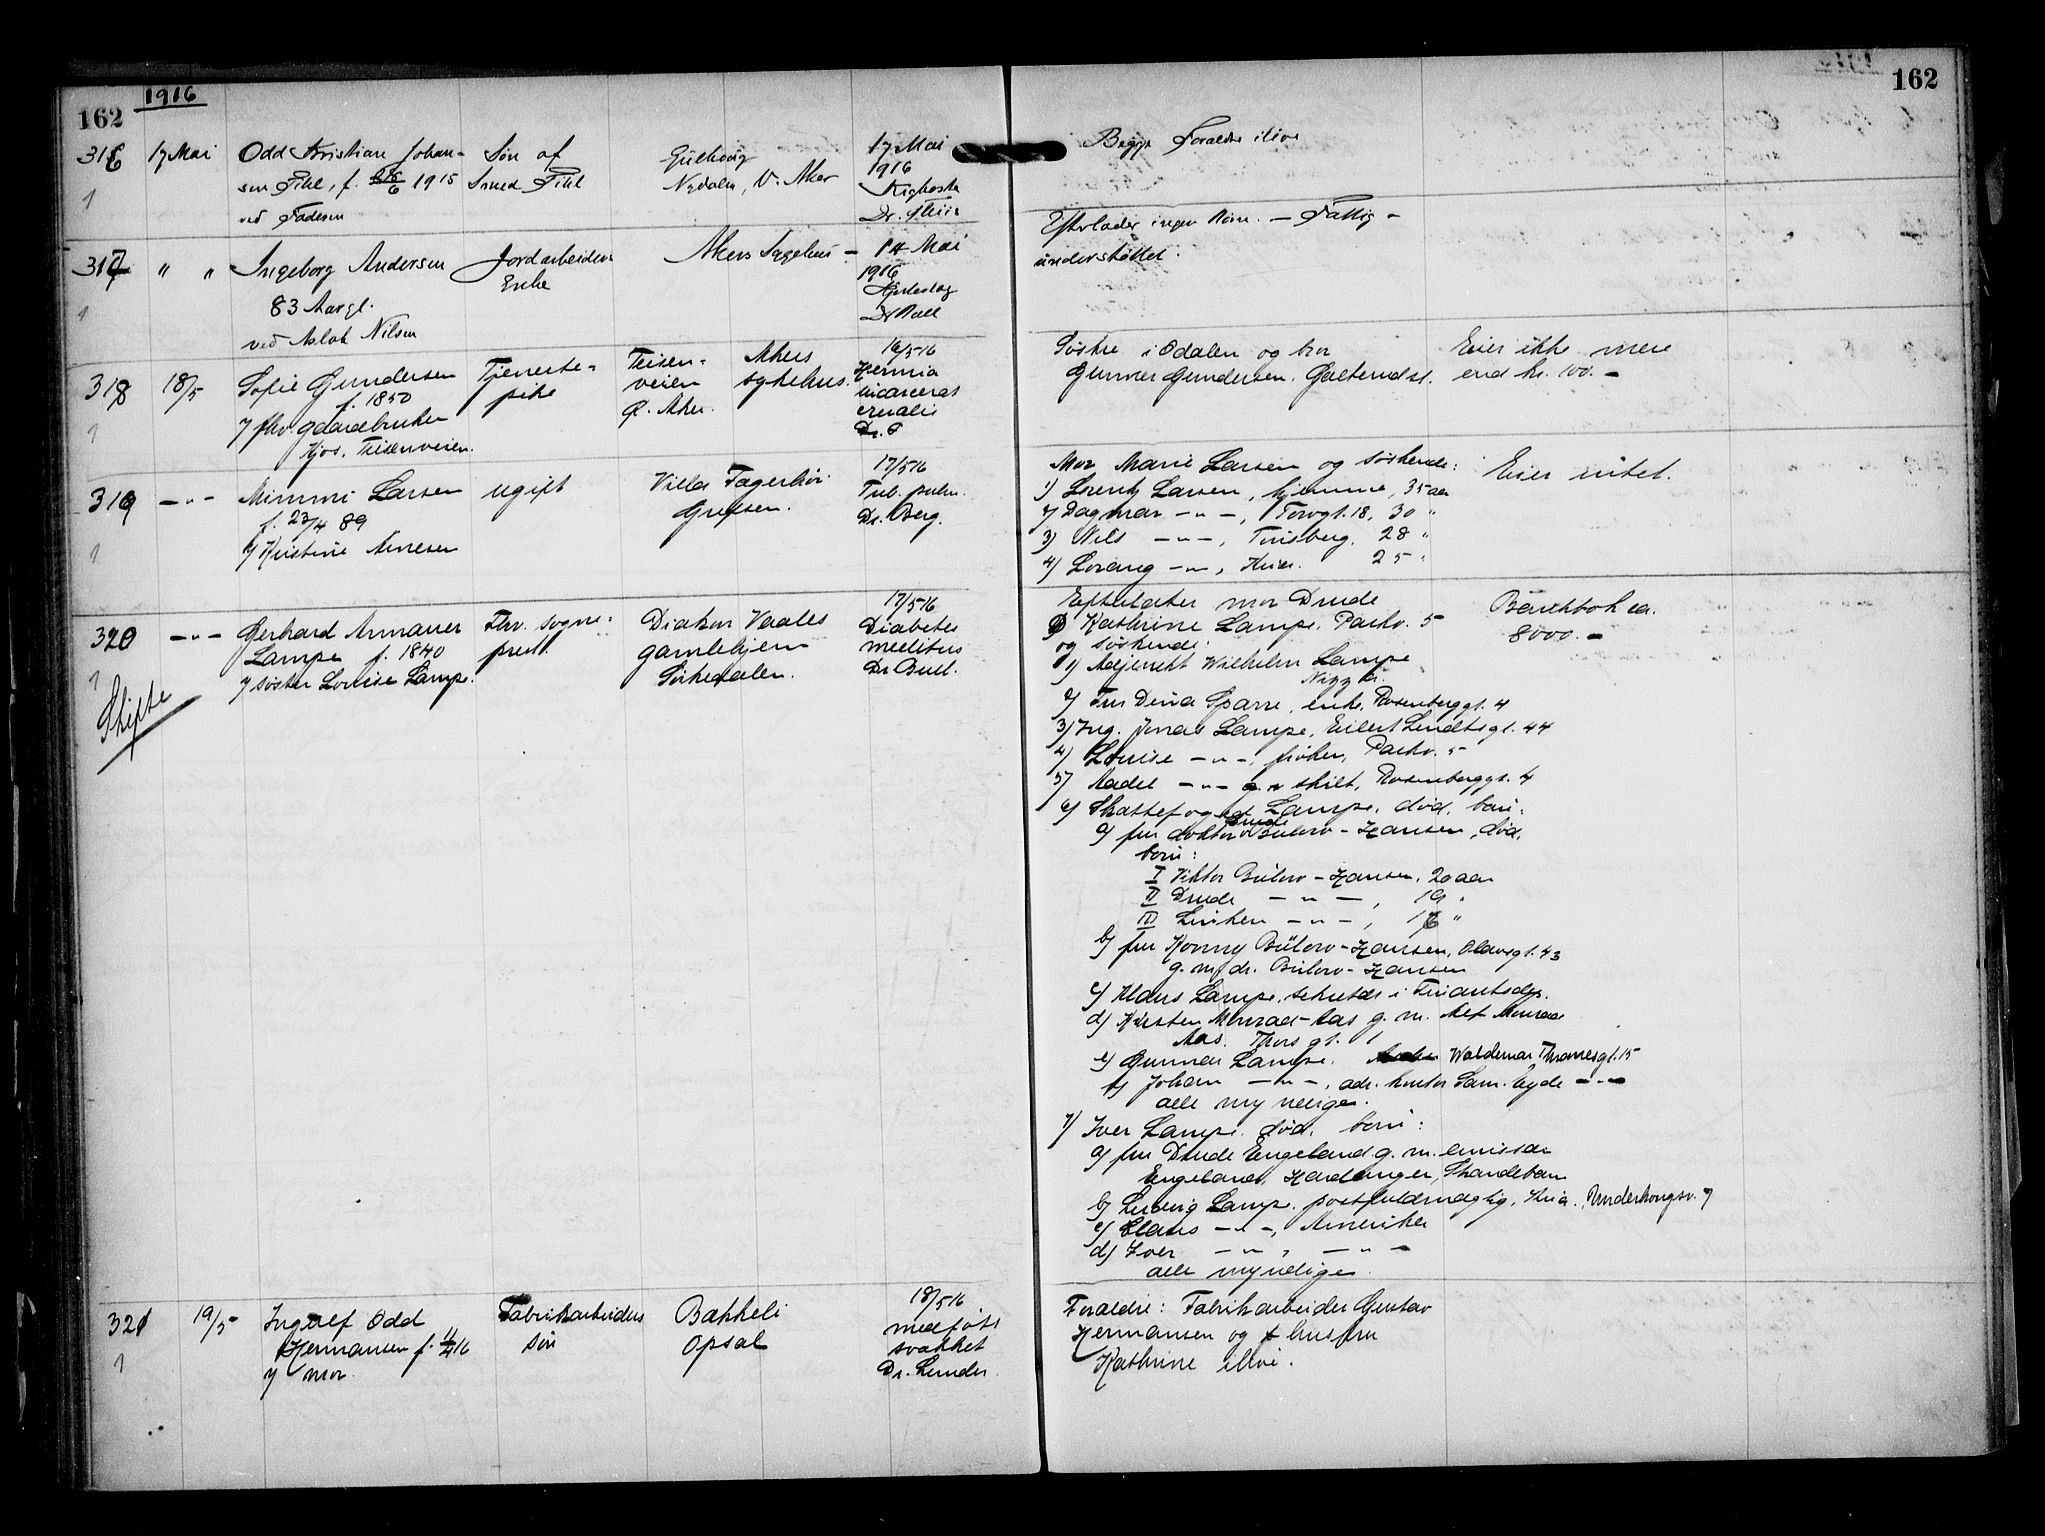 162
1916
162
316
17 Mai
Odd Kristian Johan-
sen Pihl, f. 6 1915
ved Faderen
Søn af
Smed Pihl
Nydalen, V. Aker
17 Mai
1916
Kighoste
Dr. Thiis
Begge Forældre ilive
1
317
" "
Ingeborg Andersen
83 Aar gl.
ved Aslak Nilsen
Jordarbeiders
Enke
Akers Sygehus -
14 Mai
1916
Hjerteslag
Dr Roll
Efterlader ingen Børn. - Fattig-
understøttet.
1
318
18/5
Sofie Gundersen
f. 1850
v/ fhv. gaardbruker
Kjos, Teisenveien.
Tjeneste-
pike
Teisen-
veien
Ø. Aker.
Akers
sykehus.
16/5 16
Hernia
incarcerat
cruralis
Dr. P
Søstre i Odalen og bror
Gunnar Gundersen,
Eier ikke mere
end kr. 100. -
1
319
- " -
Mimmi Larsen
f. 23/4 89
v/ Kristine Arnesen
ugift
Villa Fagerhøi
Grefsen.
17/5 16
Tub. pulm.
Dr. Berg.
Mor Marie Larsen og søskende:
1) Lorentz Larsen, hjemme, 35 aar
2) Dagmar - " -, Torvgt. 18, 30 "
3) Nils - " -, Tønsberg, 28 "
4) Lorang - " -, Kria. 25 "
Eier intet.
1
320
- " -
Gerhard Armauer
Lampe f. 1840
v/ søster Louise Lampe.
Fhv. sogne-
prest.
Diakon Vaales
gamlehjem
Sørkedalen.
17/5 16
Diabetes
mellitus
Dr Bull.
1
Skifte
Efterlater mor Drude
Kathrine Lampe, Parkv. 5
og søskende:
1) Adjunkt Wilhelm Lampe
2) Fru Dina Sparre, enke, Rosenborggt. 4
3) Ing. Jonas Lampe, Eilert Sundtsgt. 44
4) Louise - " -, frøken, Parkv. 5
5) Aadel - " - skilt, Rosenborggt. 4
6) Skattefoged Lampe, død, barn:
a) fru doktor Drude Bülow-Hansen, død,
barn:
I Viktor Bülow-Hansen, 20 aar
II Drude - " -, 19 "
III Linken - " -, 16 "
b) fru Konny Bülow-Hansen, Olavsgt. 43
g. m. dr. Bülow-Hansen
c) Klaus Lampe, sekretær i Finantsdep.
d) Kirsten Monrad-Aas g. m. Alf Monrad
Aas, Thorsgt. 1
e) Gunnar Lampe, Waldemar Thranesgt. 15
f) Johan - " -, adr. kontor Sam. Eyde - " -
alle myndige.
7) Iver Lampe, død, barn:
a) fru Drude Engeland g. m. emissær
Engeland, Hardanger,
b) Ludvig Lampe, postfuldmægtig, Kria.,
c) Claus - " -, Amerika
d) Iver - " -, - " -
alle myndige.
Bankbok ca.
8000. -
321
19/5
Ingolf Odd
Hermansen f. 11/4 16
v/ mor
Fabrikarbeiders
søn
Bakkeli
Opsal
18/5 16
medfødt
svakhet
Dr. Lunder.
Forældre: Fabrikarbeider Gustav
Hermansen og hustru
Kathrine ilive.
1